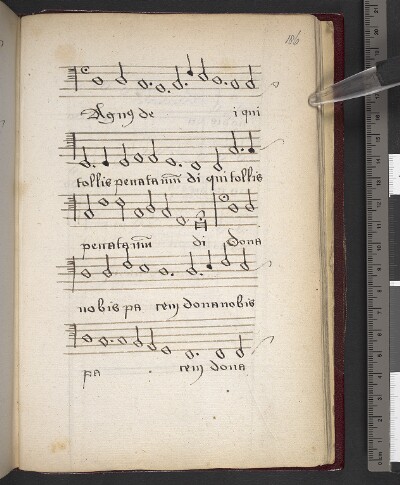 186
Agnus de i qui
tollis peccata mundi di qui tollis
peccata mundi di dona
nobis pa cem dona nobis
pa cem dona